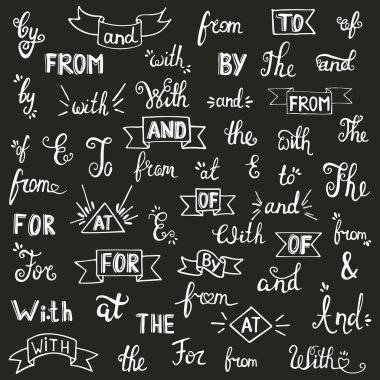 by and from TO of
FROM with BY The and
by with With and FROM
of E To AND the with The
from from at E to The
FOR AT E OF and
For FOR With OF from
BY and &
With at THE from AT And
WITH the For from With